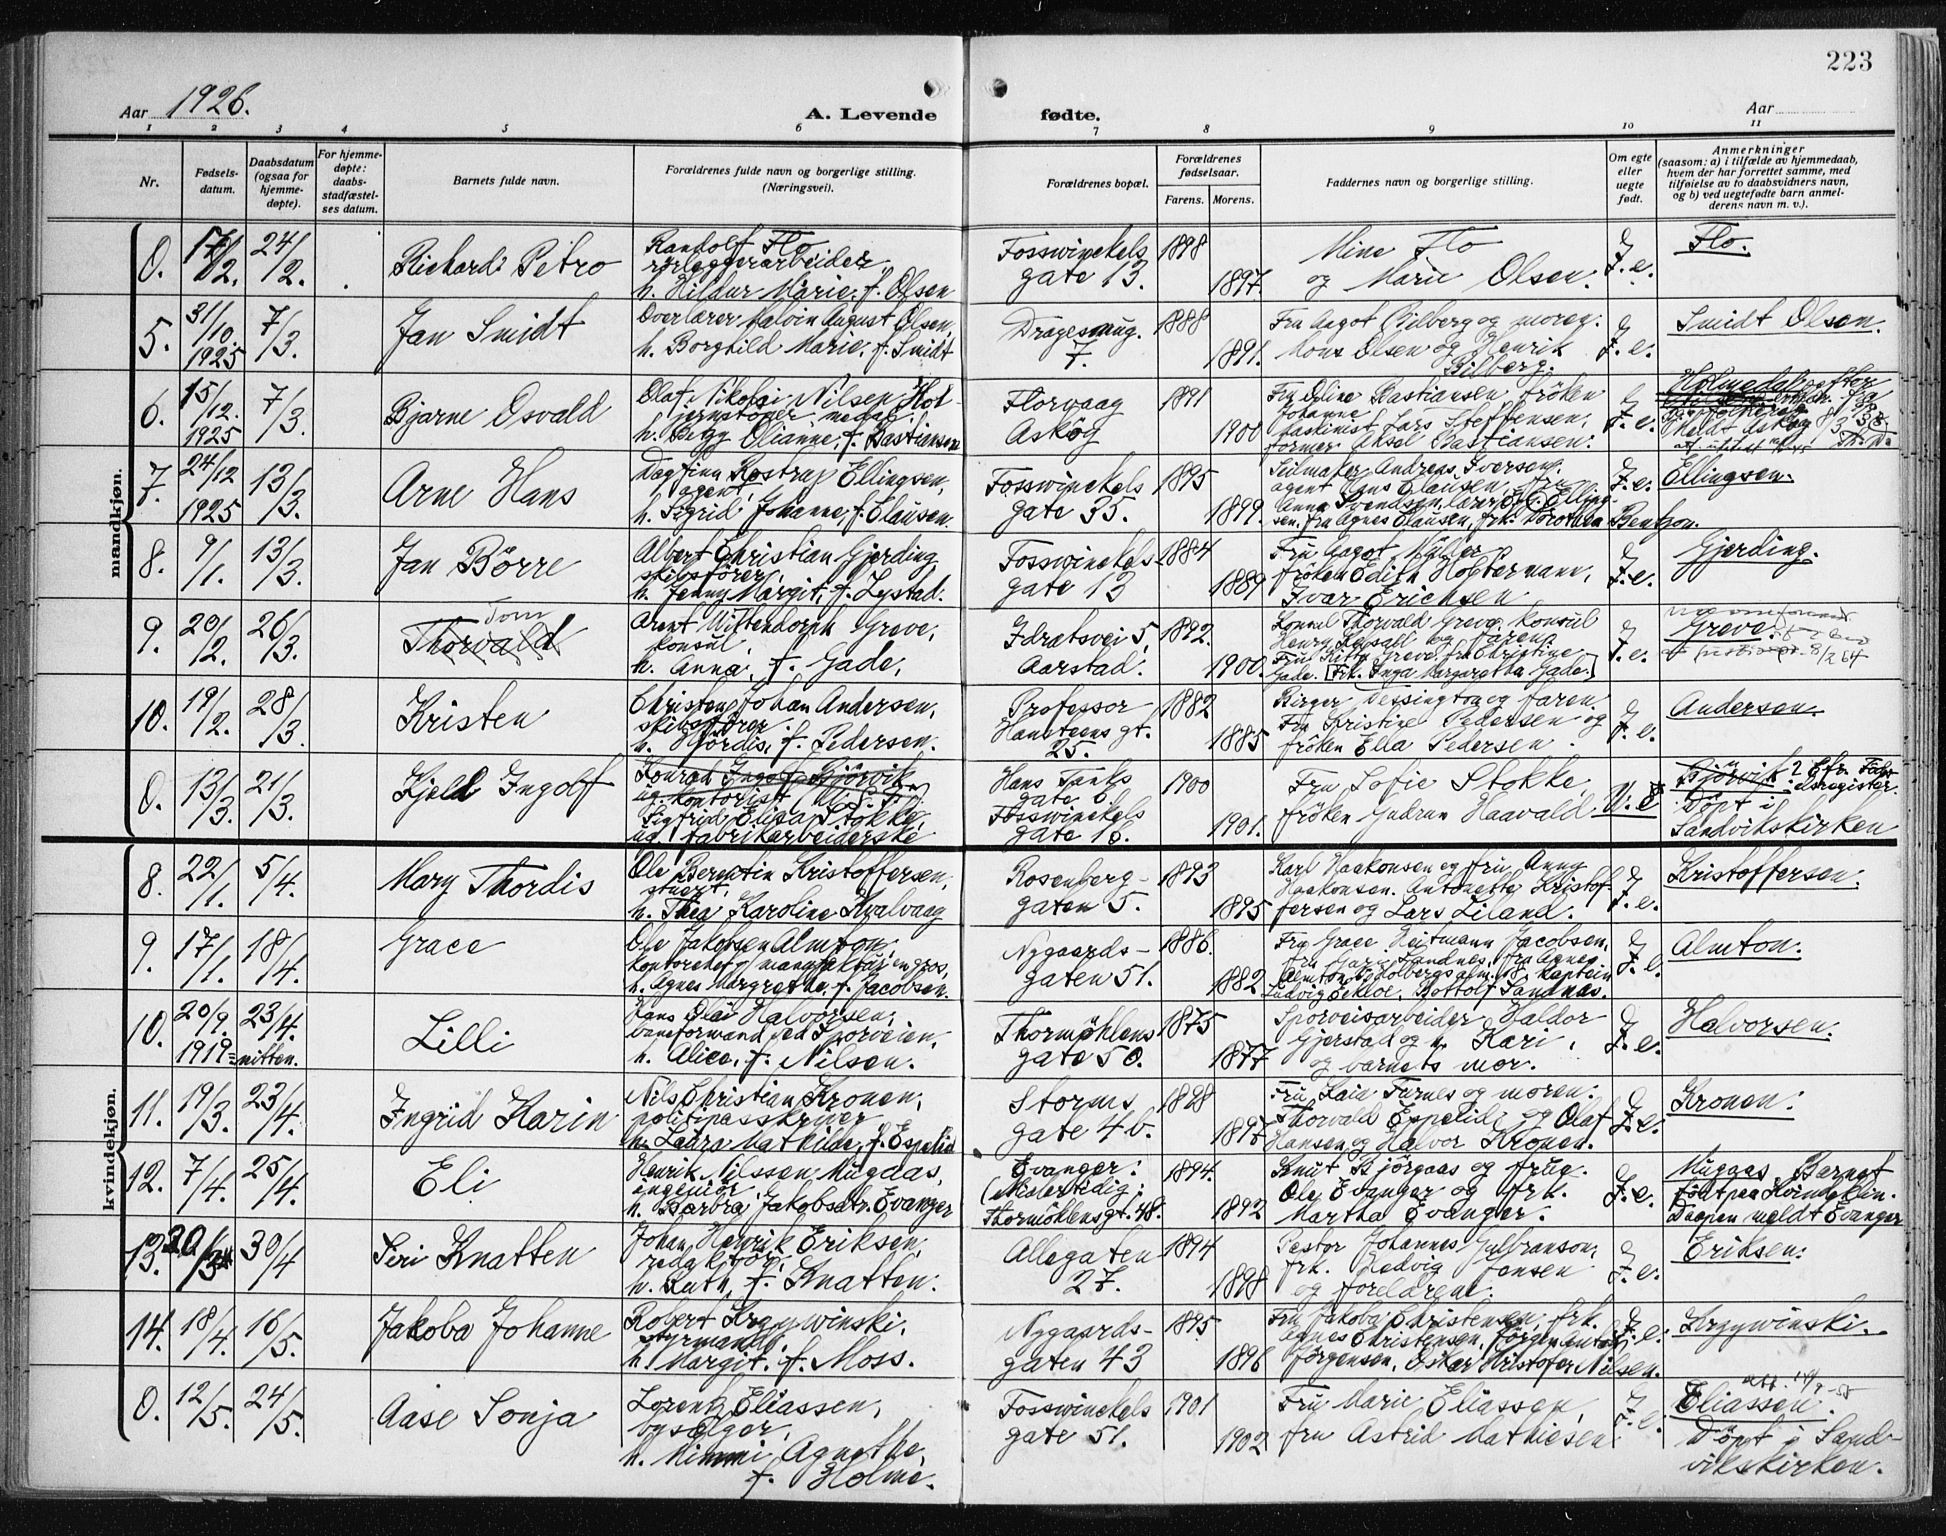 223
Aar 1926.
A. Levende fødte.
Aar
1 2 3 4 5 6 7 8 9 10 11
Nr.
Fødsels-
datum.
Daabsdatum
(ogsaa for
hjemme-
døpte).
For hjemme-
døpte:
daabs-
stadfæstel-
ses datum.
Barnets fulde navn.
Forældrenes fulde navn og borgerlige stilling.
(Næringsvei).
Forældrenes bopæl.
Forældrenes
fødselsaar.
Farens. Morens.
Faddernes navn og borgerlige stilling.
Om egte
eller
uegte
født.
Anmerkninger
(saasom: a) i tilfælde av hjemmedaab,
hvem der har forrettet samme, med
tilføielse av to daabsvidners navn,
og b) ved uegtefødte barn anmel-
derens navn m. v.).
mandkjøn.
0. 17/2. 24/2. Richard Petro
Randolf Flo
rørleggerarbeider
h. Hildur Marie, f. Olsen
Fosswinckels
gate 13.
1898
1897.
Mine Flo
og Marie Olsen.
I. e.
Flo.
5. 31/10. 1925 7/3. Jan Smidt
Overlærer Malvin August Olsen,
h. Borghild Marie, f. Smidt
Dragesmug.
7.
1888
1891.
Fru Aagot Bilberg og moren.
Mons Olsen og Henrik
Bilberg.
I. e.
Smidt Olsen.
6. 15/12. 1925 7/3. Bjarne Osvald
Olaf Nikolai Nilsen Hol-
jernstøper medal
h. Betzy Olianne, f. Bastiansen
Florvaag
Askøy
1891
1900
Fru Oline Bastiansen, frøken
Johanne
maskinist Lars Steffensen,
former Aksel Bastiansen.
I. e.
Holmedal efter
7. 24/12 1925 13/3. Arne Hans
Dagfinn Rostrup Ellingsen,
agent,
h. Sigrid Johanne, f. Clausen.
Fosswinckels
gate 35.
1895
1899.
Seilmaker Andreas Iversen,
agent Hans Clausen, fru
Anna Svendsen, lærer C. Elling-
sen, fru Agnes Clausen, frk. Dorothea Bentzon.
I. e.
Ellingsen.
8. 9/1. 13/3. Jan Børre
Albert Christian Gjerding
skibsfører,
h. Jenny Margit, f. Lystad.
Fosswinckels-
gate 13
1884
1889
Fru Aagot Müller.
frøken Edith Holtermann,
Ivar Erichsen
I. e.
Gjerding.
9. 20/2. 26/3. Tom
Thorvald
Arent Wittendorph Greve,
konsul,
h. Anna, f. Gade,
Idrætsvei 5,
Aarstad.
1892.
1900.
Konsul Thorvald Greve, konsul
og faren.
Fru Kitty Greve, fru Christine
Gade. [Frk. Inga Margaretha Gade.]
I. e.
Greve.
8/2 64
10. 19/2. 28/3. Kristen
Christen Johan Andersen,
skibsfører.
h. Hjördis, f. Pedersen.
Professor
Hansteens gt.
25.
1882
1885
Birger Dessington og faren.
Fru Kristine Pedersen og
frøken Ella Pedersen.
I. e.
Andersen.
0. 13/3. 21/3. Kjell Ingolf
Konrad Ingolf Bjørvik
ug. kontorist
Sigfrid Elisa Stokke,
ug. fabrikarbeiderske
Hans Tanks
gate 6
Fosswinckels
gate 18.
1900
1901.
Fru Sofie Stokke,
frøken Gudrun Haavald.
U. e
Bjørvik?
Døpt i
Sandvikskirken
kvindekjøn.
8. 22/1. 5/4. Mary Thordis
Ole Berentin Kristoffersen,
stuert,
h. Thea Karoline Kvalvaag
Rosenberg-
gaten 5.
1893
1895
Karl Haakonsen og fru Anna
Haakonsen. Antonette Kristof-
fersen og Lars Liland.
I. e.
Kristoffersen.
9. 17/1. 18/4. Grace
Ole Jakobsen Almton,
h. Agnes Margrethe, f. Jacobsen.
Nygaards-
gaten 51.
1886.
1882
Fru Grace Heitmann Jacobsen,
fru Marie Sandnes, fru Agnes
Almton, kaptein
Bottolf Sandnæs.
I. e.
Almton.
10. 20/9. 1919=nitten. 23/4. Lilli
Hans Olai Halvorsen,
baneformand ved Sporveien,
h. Alice, f. Nilsen.
Thormøhlens
gate 50.
1875
1877
Sporveisarbeider Haldor
Gjerstad og h. Kari,
og barnets mor.
I. e.
Halvorsen.
11. 19/3. 23/4. Ingrid Karin
Nils Christian Kronen,
politipasskriver
h. Laura Mathilde, f. Espelid
Storms
gate 4b.
1898
1895
Fru Furnes og moren.
Thorvald Espelid og Olaf
Hansen og Halvor Kronen.
I. e.
Kronen:
12. 7/4. 25/4. Eli
Henrik Nilssen Mugaas,
ingeniør,
h. Barbra Jakobsdtr. Evanger
Evanger:
(Midlertidig:
Thormøhlensgt. 48.
1894.
1892
Knut Bjørgaas og frue.
Ole Evanger og frk.
Martha Evanger.
I. e.
Mugaas Barnet
født paa Kvindeklin.
Daapen meldt Evanger
13. 30/4 Siri Knatten
Johan Henrik Eriksen,
redaktør,
h. Ruth, f. Knatten.
Allegaten
27.
1894
1898
Pastor Johannes Gulbranson,
frk. Hedvig Jensen
og foreldrene.
I. e.
Eriksen.
14. 18/4. 16/5. Jakoba Johanne
Robert Krzywinski.
styrmand.
h. Margit, f. Moss.
Nygaards-
gaten 43
1895
1896
Fru Jakoba Christensen, frk.
Agnes Christensen, Jørgen Anton
Jørgensen, Oskar Kristofer Nilsen.
I. e.
Krzywinski.
0. 12/5. 24/5. Aase Sonja
Lorentz Eliassen,
bysælger,
h. Mimmi Agnethe,
f. Holme.
Fosswinckels
gate 51.
1901
1902
Fru Marie Eliassen,
fru Astrid Mathiesen
I. e.
Eliassen.
Døpt i Sand-
vikskirken.